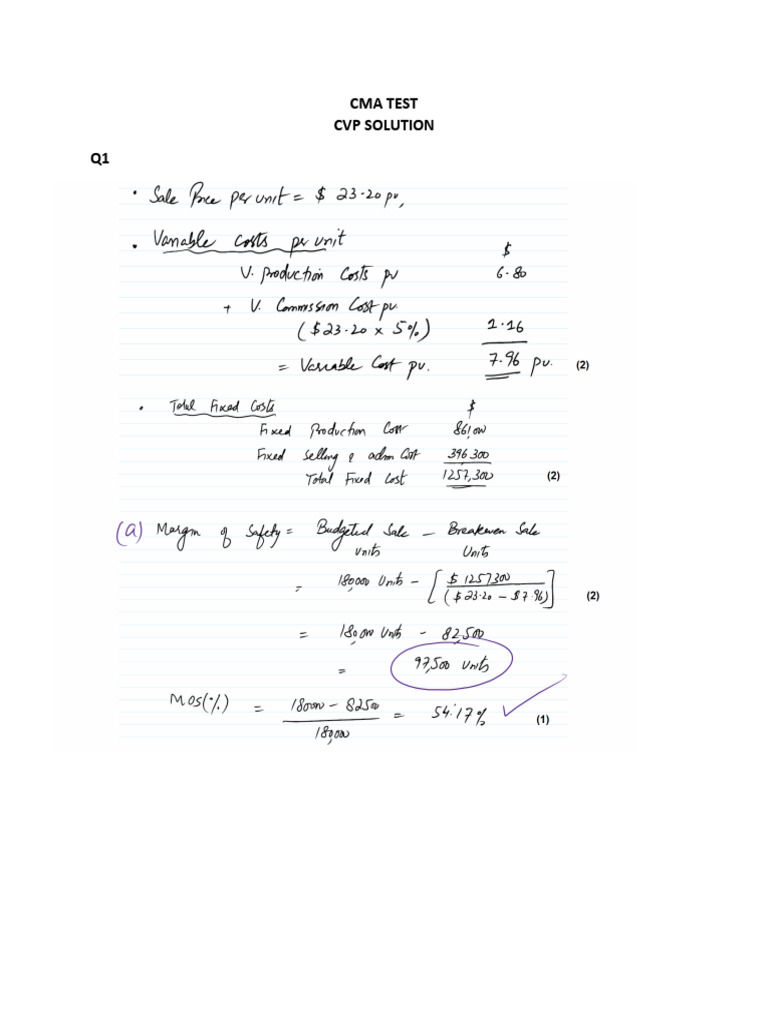 CMA TEST
CVP SOLUTION
Q1
• Sale Price per unit = $ 23.20 pu,
• Variable costs per unit $
V. Production Costs pu 6.80
+ V. Commission Cost pu.
($23.20 x 5%) 1.16
= Variable Cost pu. 7.96 pu. (2)
• Total Fixed Costs $
Fixed Production Cost 861,000
Fixed Selling & adm Cost 396,300
Total Fixed Cost 1257,300 (2)
(a) Margin of Safety = Budgeted Sale – Breakeven Sale
units Units
= 180,000 Units – [ $ 1257300
($ 23.20 – $ 7.96) ] (2)
= 180,000 Units – 82,500
= 97,500 Units
MOS(%) = 180000 – 82500 = 54.17% (1)
180,000